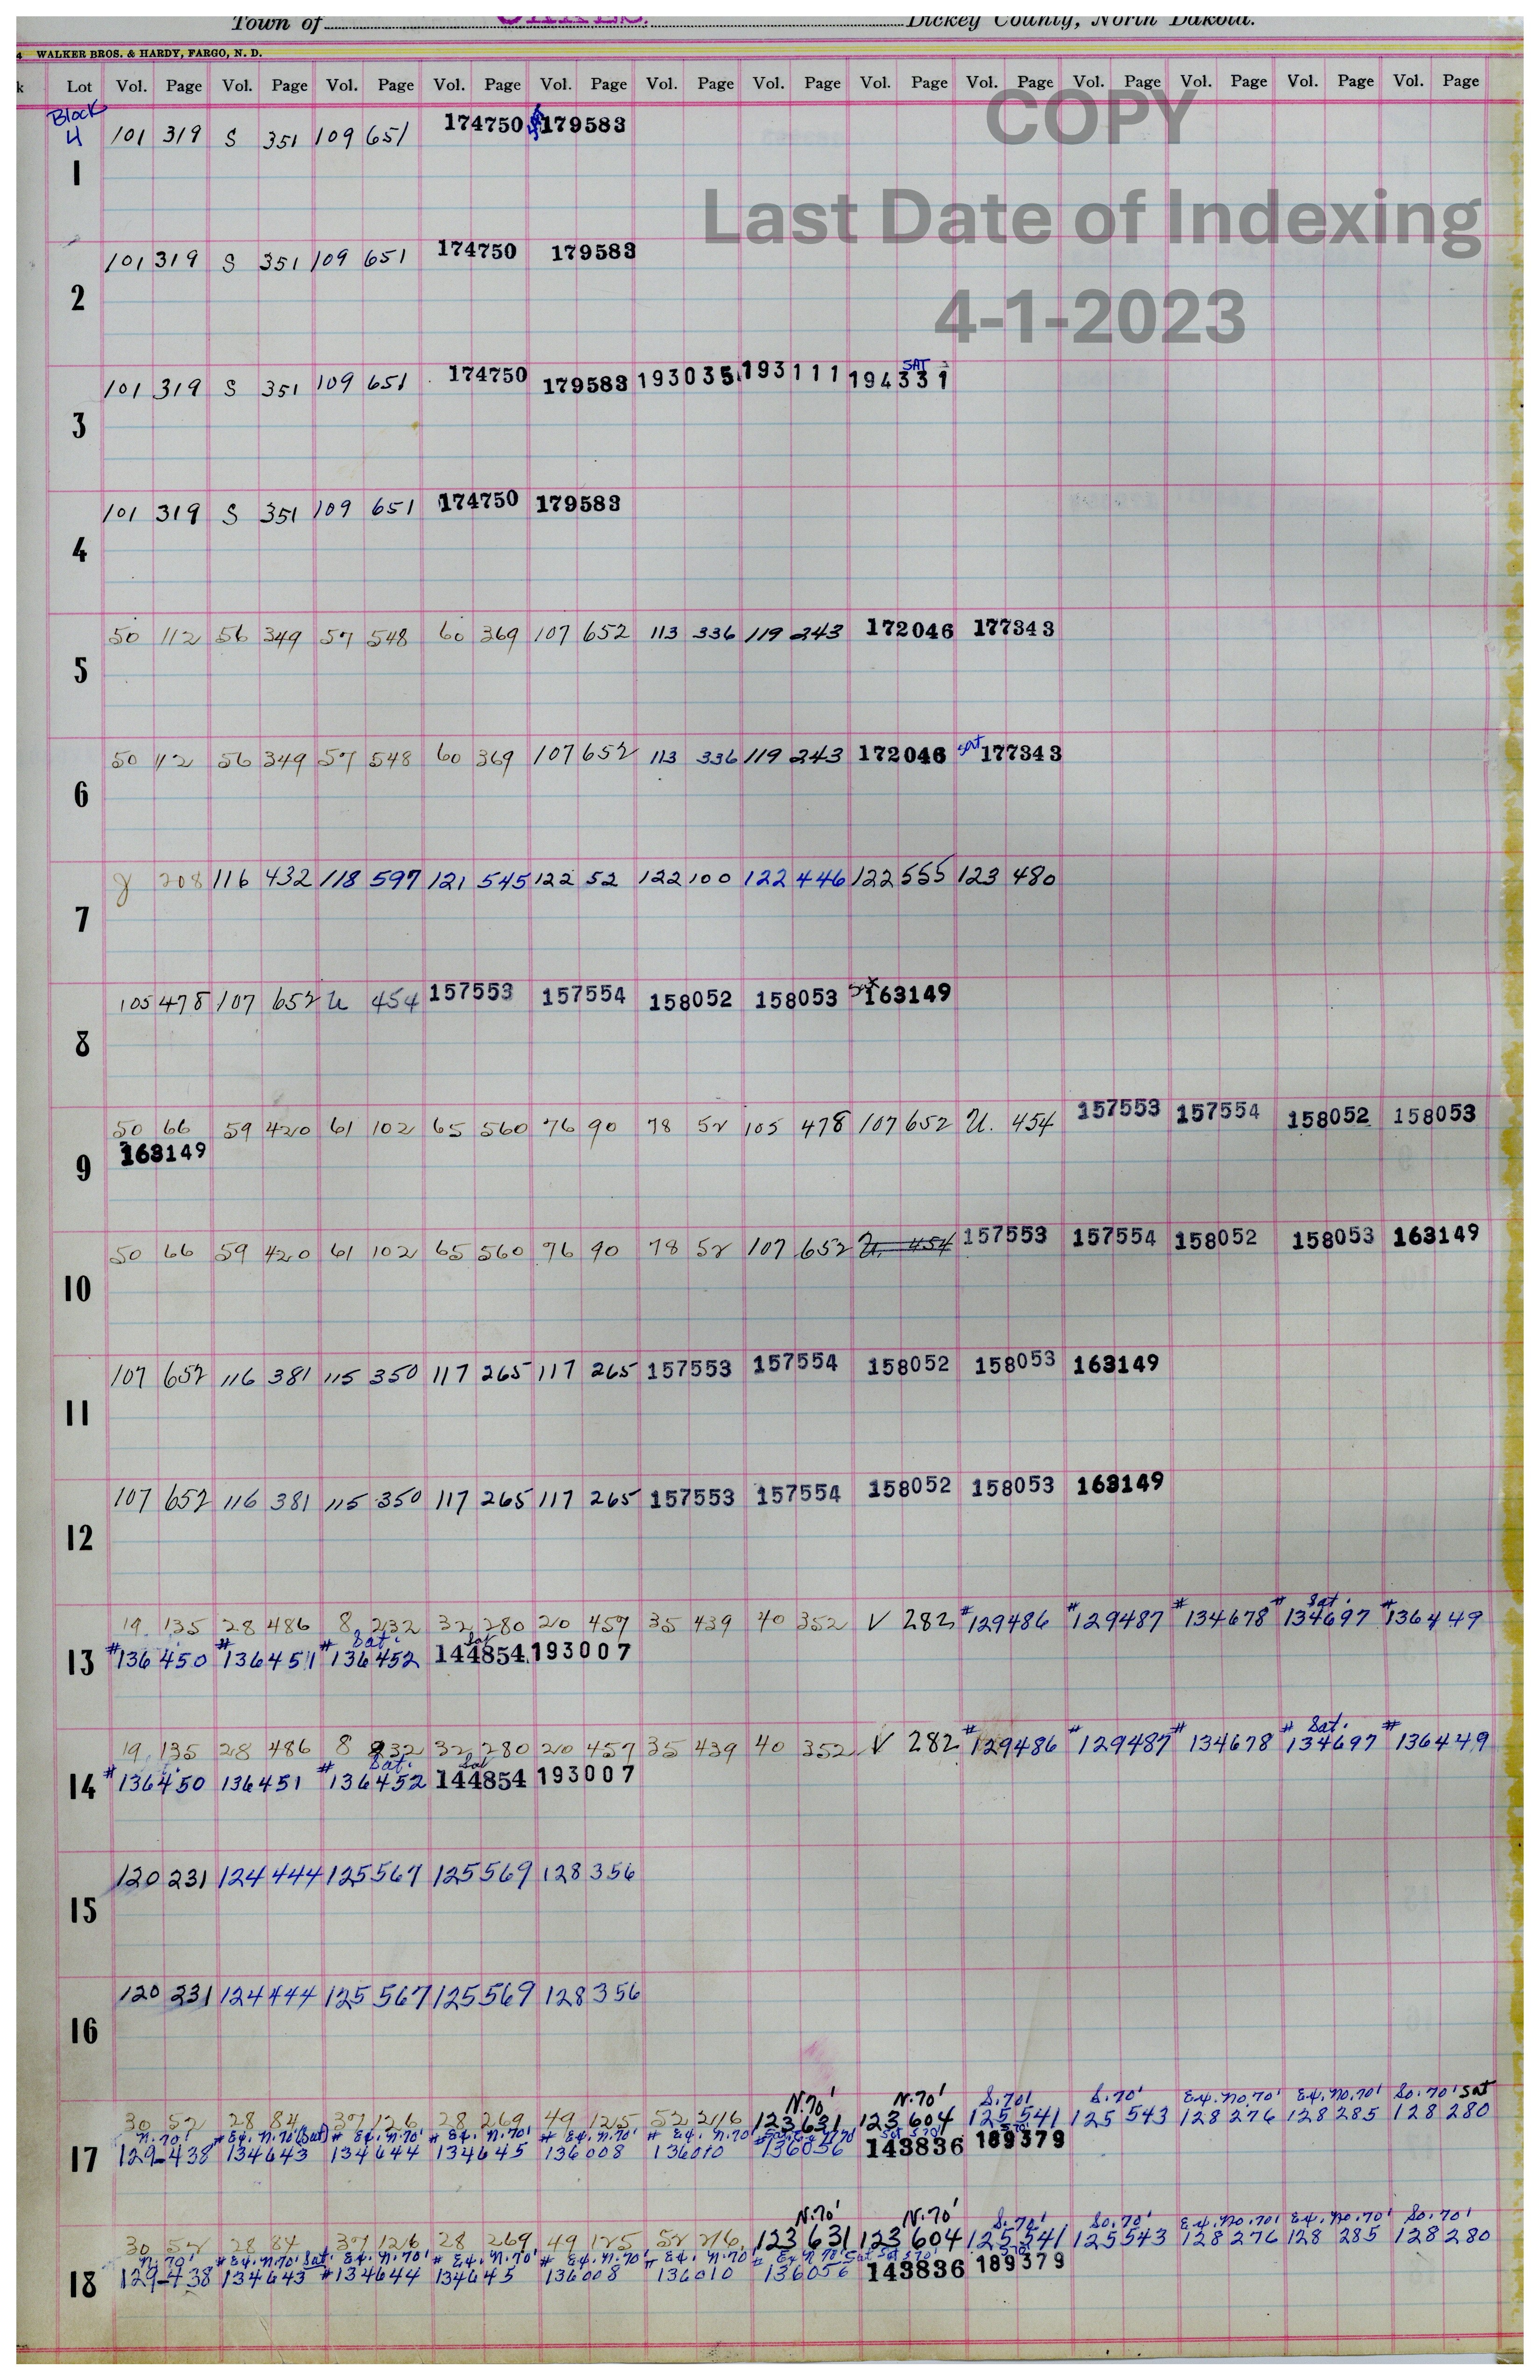 Town of Dickey County, North Dakota.
4 WALKER BROS. & HARDY, FARGO, N. D.
k Lot Vol. Page Vol. Page Vol. Page Vol. Page Vol. Page Vol. Page Vol. Page Vol. Page Vol. Page Vol. Page Vol. Page Vol. Page Vol. Page
COPY
Last Date of Indexing
4-1-2023
Block
4 101 319 S 351 109 651 174750 179583
1
101 319 S 351 109 651 174750 179583
2
SAT
101 319 S 351 109 651 174750 179583 193035 193111 194331
3
101 319 S 351 109 651 174750 179583
4
50 112 56 349 57 548 60 369 107 652 113 336 119 243 172046 177343
5
50 112 56 349 57 548 60 369 107 652 113 336 119 243 172046 sat 177343
6
g 208 116 432 118 597 121 545 122 52 122 100 122 446 122 555 123 480
7
105 478 107 652 U 454 157553 157554 158052 158053 Sat 163149
8
50 66 59 420 61 102 65 560 76 90 78 52 105 478 107 652 U. 454 157553 157554 158052 158053
163149
9
50 66 59 420 61 102 65 560 76 90 78 52 107 652 U. 454 157553 157554 158052 158053 163149
10
107 652 116 381 115 350 117 265 117 265 157553 157554 158052 158053 163149
11
107 652 116 381 115 350 117 265 117 265 157553 157554 158052 158053 163149
12
Sat.
19 135 28 486 8 232 32 280 20 457 35 439 40 352 V 282 #129486 #129487 #134678 #134697 #136449
Sat. Sat
13 #136450 #136451 #136452 144854 193007
Sat.
19 135 28 486 8 232 32 280 20 457 35 439 40 352 V 282 #129486 #129487 #134678 #134697 #136449
Sat. Sat
14 #136450 136451 #136452 144854 193007
120 231 124 444 125 567 125 569 128 356
15
120 231 124 444 125 567 125 569 128 356
16
N.70' N.70' S.70' S.70' E4.No.70' E4.No.70' So.70' Sat
30 52 28 84 37 126 28 269 49 125 52 216 123 631 123 604 125 541 125 543 128 276 128 285 128 280
N.70' #E4.N.70' (Sat) # E4.N.70' # E4.N.70' # E4.N.70' # E4.N.70' Sat S70'
17 129-438 134643 134644 134645 136008 136010 136056 143836 189379
N.70' N.70' S.70' So.70' E4.No.70' E4.No.70' So.70'
30 52 28 84 37 126 28 269 49 125 52 216 123 631 123 604 125 541 125 543 128 276 128 285 128 280
N.70' #E4.N.70' Sat. E4.N.70' # E4.N.70' # E4.N.70' # E4.N.70' # E4 N 70' Sat Sat S70'
18 129-438 134643 #134644 134645 136008 136010 136056 143836 189379